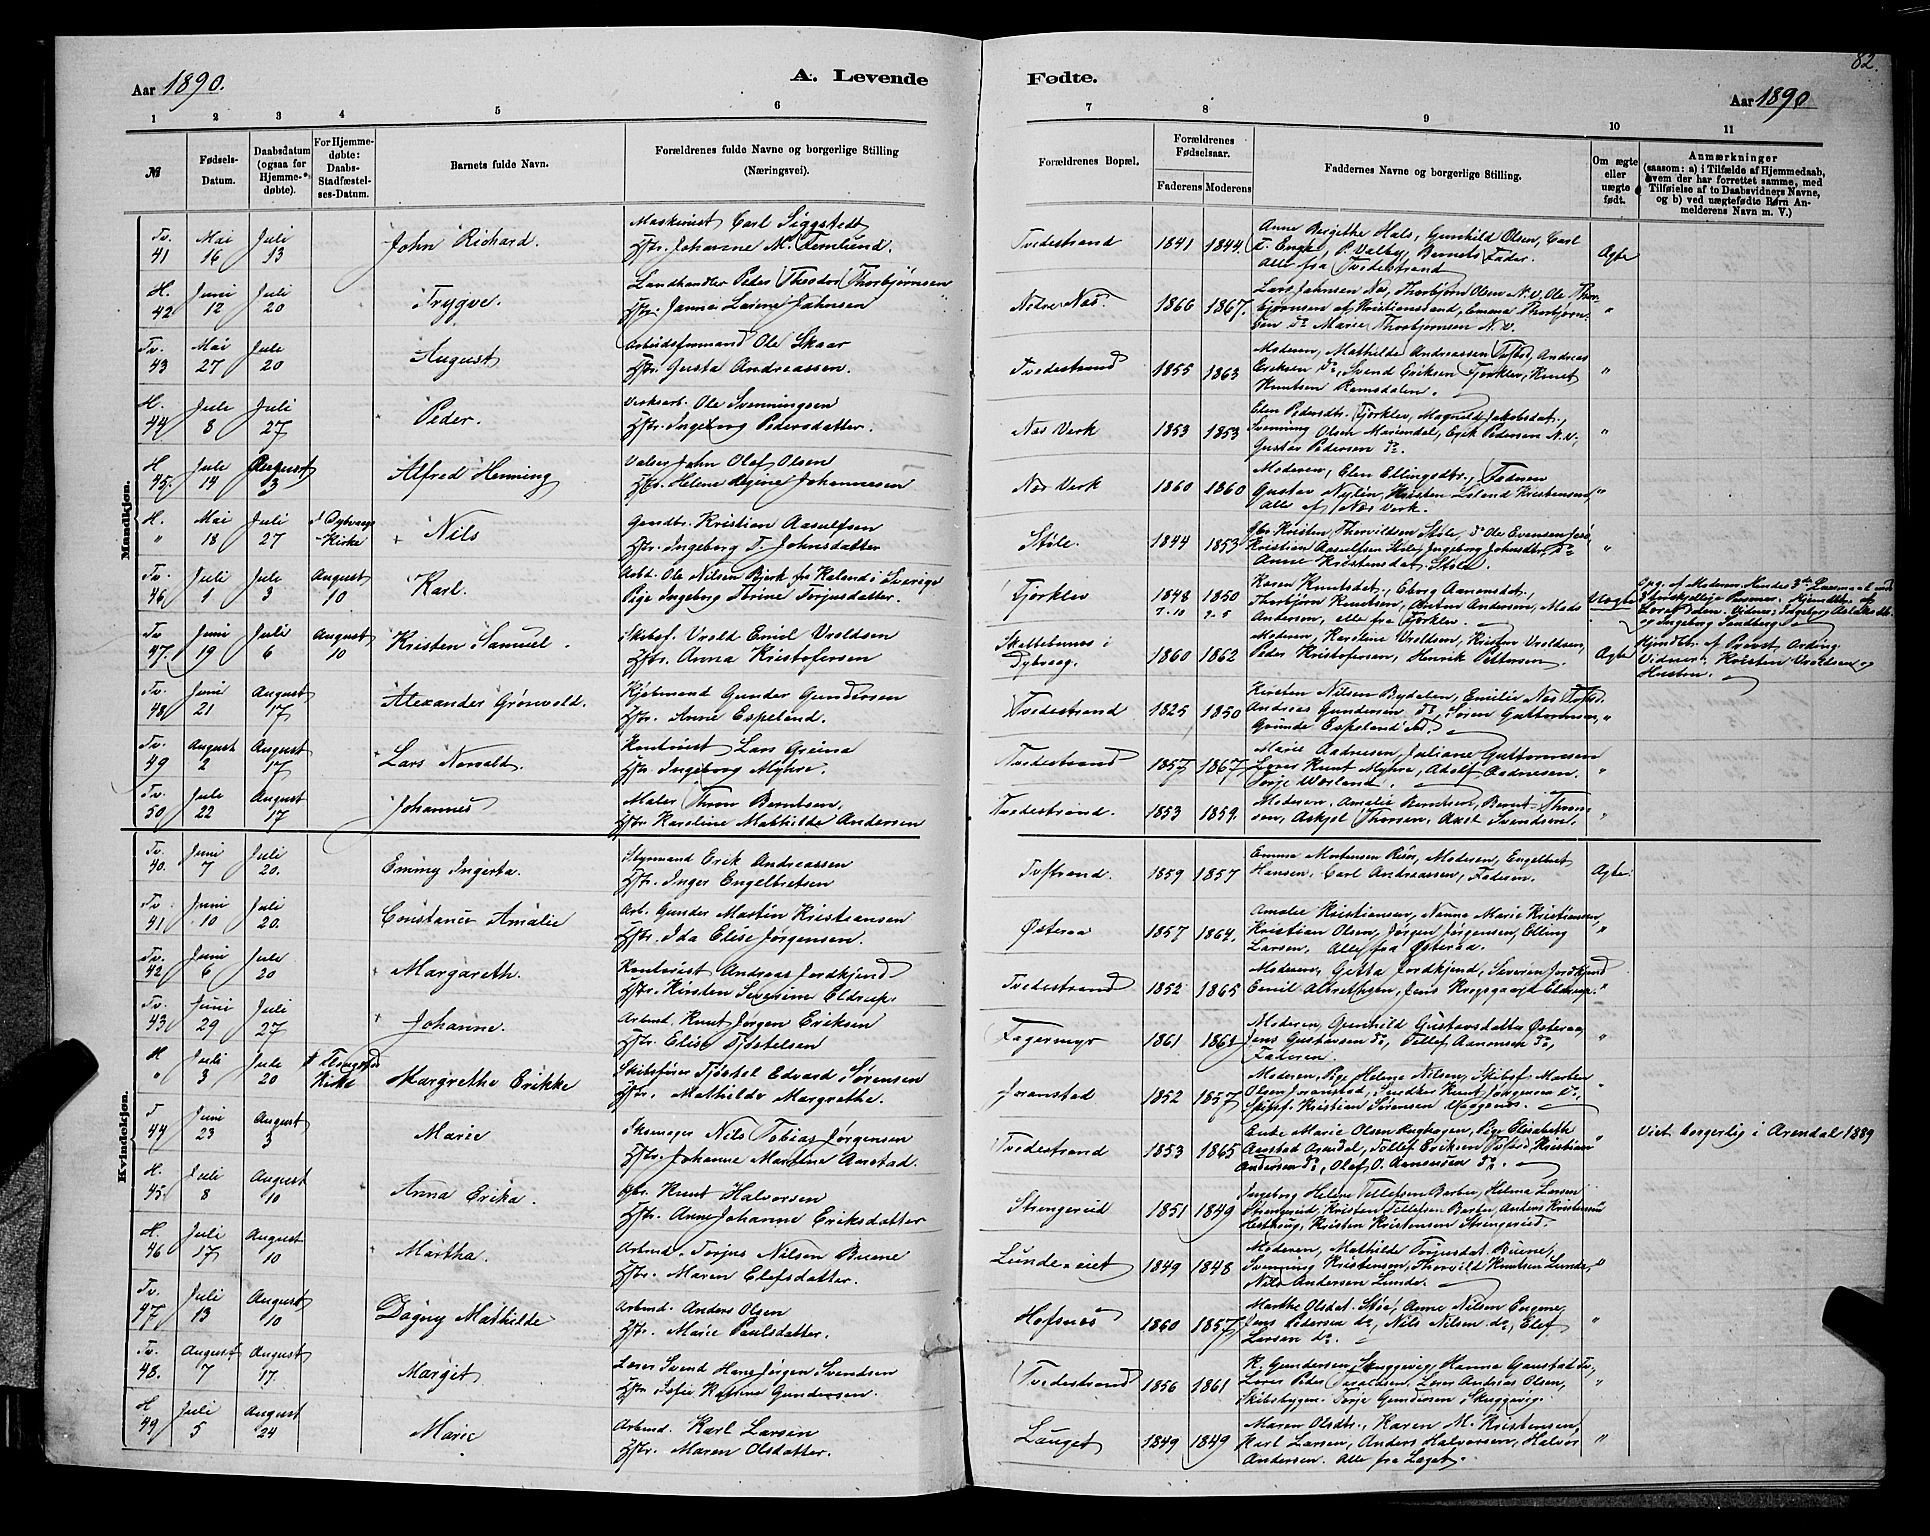 82.
Aar 1890.
A. Levende
Fødte.
Aar 1890
1 2 3 4 5 6
7 8 9 10 11
№
Fødsels-Datum.
Daabsdatum (ogsaa for Hjemme-døbte).
For Hjemme-døbte: Daabs-Stadfæstel-ses-Datum.
Barnets fulde Navn.
Forældrenes fulde Navne og borgerlige Stilling (Næringsvei).
Forældrenes Bopæl.
Forældrenes Fødselsaar.
Faderens Moderens
Faddernes Navne og borgerlige Stilling.
Om ægte eller uægte født.
Anmærkninger
(saasom: a) i Tilfælde af Hjemmedaab, hvem der har forrettet samme, med Tilføielse af to Daabsvidners Navne, og b) ved uægtefødte Børn An-melderens Navn m. V.)
Mandkjøn.
Tv. 41 Mai 16 Juli 13 John Richard. Maskinist Carl Siggstedt
Hstr. Johanne M. Ternlund.
Tvedestrand 1841 1844. Anne Bergithe Hals, Gunhild Olsen, Carl
T. Engke, P. Valby, Barnets Fader.
Alle fra Tvedestrand
Ægte
H. 42 Juni 12 Juli 20 Trygve. Landhandler Peder Theodor Thorbjørnsen
Hstr. Janna Lovine Jahnsen
Nedre Næs. 1866 1867. Lars Jahnsen Næs, Thorbjørn Olsen N.V., Ole Thor-
bjørnsen af Kristianssand, Emma Thorbjørn-
sen do Marie Thorbjørnsen N.V.
"
Tv. 43 Mai 27 Juli 20 August Arbeidsformand Ole Skaar
Hstr. Gusta Andreassen.
Tvedestrand 1855 1863 Moderen, Mathilde Andreassen Tvestrd, Andreas
Eriksen do, Svend Eriksen Fjorklev, Knut
Knutsen Ramsdalen.
"
H. 44 Juli 8 Juli 27 Peder. Verksarb. Ole Svenningsen
Hstr. Ingeborg Pedersdatter.
Næs Verk 1853 1853 Elen Pedersdtr. Fjorklev, Magnild Jakobsdat.,
Svenning Olsen Mariendal, Erik Pedersen N.V.,
Gustav Pedersen do.
"
H 45. Juli 14 August 3 Alfred Henning Valser John Olaf Olsen
Hstr. Helene Regine Johannesen
Næs Verk 1860 1860 Moderen, Elen Ellingsdtr., Faderen
Gustav Nylin, Kristen Leland Kristensen
Alle af Næs Verk.
"
H. " Mai 18 Juli 27 i Dybvaags Kirke Nils Gaardbr. Kristian Aasulfsen
Hstr. Ingeborg T. Johnsdatter
Støle. 1844 1853 Gbr. Kristen Thorvildsen Støle, do Ole Evensen
Kristian Aasulfsen Støle, Ingeborg Johnsdtr. do
Anne Kristensdat. Støle.
"
Tv. 46 Juli 1 Juli 3 August 10 Karl. Arbd. Ole Nilsen Bjerk fra Kaland i Sverige
Pige Ingeborg Torine Torjusdatter.
Fjorklev 1848 7-10 1850 2-5 Karen Knutsdat., Eborg Aanensdat.,
Thorbjørn Knutsen, Anton Andersen, Mads
Andersen, alle fra Fjorklev.
Uægte
Opg. af Moderen. Hendes 3die Leiermaal med
3 forskjellige Personer. Hjemdbt. af
Tv 47. Juni 19 Juli 6 August 10 Kristen Samuel. Skibsf. Vrold Emil Vroldsen
Hstr. Anna Kristofersen
Skottebunes i Dybvaag. 1860 1862 Moderen, Karoline Vroldsen, Kristen Vroldsen,
Peder Kristofersen, Henrik Pettersen.
Ægte
Hjemdbt. af Provst Arding.
Vidner: Kristen Vroldsen og
Hustru.
Tv. 48 Juni 21 August 17 Alexander Grønvold. Kjøbmand Gunder Gundersen
Hstr. Anne Espeland.
Tvedestrand 1825 1850 Kirsten Nilsen Bydalen, Emilie Næs Tvstrd.
Andreas Gundersen do, Søren Guttormsen,
Grunde Espeland do.
"
Tv. 49 August 2 August 17 Lars Norvald Kontorist Lars Greina
Hstr. Ingeborg Myhre.
Tvedestrand 1857 1867 Marie Aadnesen, Juliane Guttormsen
Lærer Knut Myhre, Adolf Aadnesen.
Torje Værland.
"
Tv. 50 Juli 22 August 17 Johannes Maler Thron Berntsen,
Hstr. Karoline Mathilde Andersen
Tvedestrand. 1853 1859. Moderen, Amalie Berntsen, Bernt Thron-
sen, Askjel Thorsen, Axel Svendsen.
"
Kvindekjøn.
Tv. 40. Juni 7 Juli 20. Emmy Ingerta. Styrmand Erik Andreassen
Hstr. Inger Engelbretsen
Tvstrand. 1859 1857 Emma Mortensen Risør, Moderen, Engelbret
Hansen, Carl Andreassen, Faderen.
Ægte
Tv 41 Juni 10 Juli 20. Constance Amalie Arb. Gunder Martin Kristiansen
Hstr. Ida Elise Jørgensen.
Østeraa 1857 1864. Amalie Kristiansen, Nanna Marie Kristiansen,
Kristian Olsen, Jørgen Jørgensen, Elling
Larsen, Alle fra Østeraa.
"
Tv. 42 Juni 6 Juli 20 Margareth. Kontorist Andreas Jordkjend
Hstr. Kirsten Severine Eldrup.
Tvedestrand 1852 1865 Moderen, Gitta Jordkjend, Severin Jordkjend
Emil Albretsen, Jens Krogsgaard Eldrup.
"
Tv. 43 Juni 29 Juli 27 Johanne. Arbmd. Knut Jørgen Eriksen
Hstr. Elise Tjøstelsen
Fagermyr 1861 1861 Moderen, Gunhild Gustavsdatter Østeraa,
Jens Gustavsen do, Tellef Aanonsen do,
Faderen.
"
H. " Juli 3 Juli 20 Kirke Margrethe Erikke Skibsfører Tjøstel Edvard Sørensen
Hstr. Mathilde Margrethe.
Goranstad 1852 1857 Moderen, Pige Helene Nilsen, Skibsf. Morten
Olsen Goranstad, Snedker Knut Jørgensen do,
Skipsf. Kristian Sørensen Krogenes.
"
T 44 Juni 23 August 3 Marie Skomager Nils Tobias Jørgensen
Hstr. Johanne Martine Aanstad.
Tvedestrand 1853 1865 Enke Marie Olsen Berghagen, Pige Elisabeth
Aanstad Arendal, Tellef Eriksen Tvstrd. Kristian
Andersen do, Olaf O. Aamundsen do.
"
Viet borgerlig i Arendal 1889
H. 45. Juli 8 August 10 Anna Erika. Gbr. Knut Halvorsen
Hstr. Anne Johanne Eriksdatter
Strengereid 1851 1849 Ingeborg Helene Tellefsen Barbu, Helena Larsen
Strengereid, Kristen Tellefsen Barbu, Anders Kristensen
Kristen Kristensen Strengereid.
"
H. 46 Juli 17 August 10 Martha. Arbmd. Torjus Nilsen Buene
Hstr. Maren Elefsdatter.
Lunde-eiet 1849 1848 Moderen, Mathilde Torjusdat. Buene,
Svenning Kristensen, Thorvild Knutsen Lunde,
Nils Andersen Lunde.
"
Tv. 47 Juli 13 August 10 Dagny Mathilde Arbmd. Anders Olsen
Hstr. Marie Paulsdatter.
Hofsnæs 1860 1857 Marthe Olsdat. Støa, Anne Nilsen Eugene,
Jens Pedersen do, Nils Nilsen do, Elef
Larsen do.
"
Tv. 48. August 7 August 17. Margit Losr Svend Hans Jørgen Svendsen
Hstr Sofie Katrine Gundersen.
Tvedestrand 1856 1861 K. Gundersen, Skuggevig, Hanna Gaustad Tv,
Lærer Peder Taraldsen, Lærer Andreas Olsen,
Skibsbyggm. Torje Gundersen Skuggevig.
"
H 49 Juli 5 August 24 Marie Arbmd. Karl Larsen
Hstr. Maren Olsdatter.
Lauget 1849 1849 Maren Olsdtr., Karen M. Kristensen,
Karl Larsen, Anders Halvorsen, Halvor
Andersen. Alle fra Laget.
"